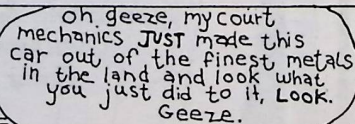 oh geeze, my court
mechanics JUST made this
car out of the finest metals
in the land and look what
you just did to it, LOOK.
Geeze.